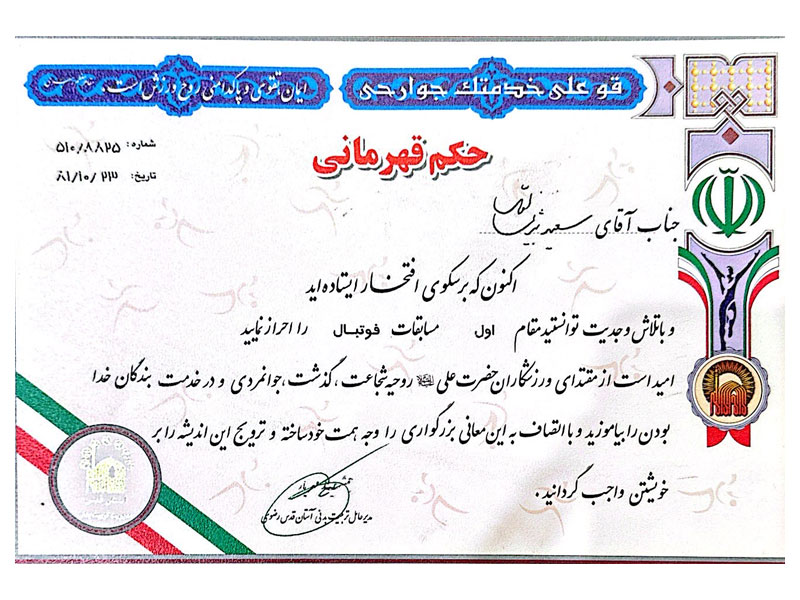 قو علی خدمتك جوارحی
ایمان تقوی و پاکدامنی روح ورزش است.
حکم قهرمانی
شماره: ۵۱۰/۸۸۲۵
تاریخ: ۸۱/۱۰/۲۳
جناب آقای سعید
اکنون که بر سکوی افتخار ایستاده اید
و با تلاش و جدیت توانستید مقام اول مسابقات فوتبال را احراز نمایید
امید است از مقتدای ورزشکاران حضرت علی روحیه شجاعت، گذشت، جوانمردی و در خدمت بندگان خدا
بودن را بیاموزید و با اتصاف به این معانی بزرگواری را وجه همت خود ساخته و ترویج این اندیشه را بر
خویشتن واجب گردانید.
مدیرعامل تربیت بدنی آستان قدس رضوی